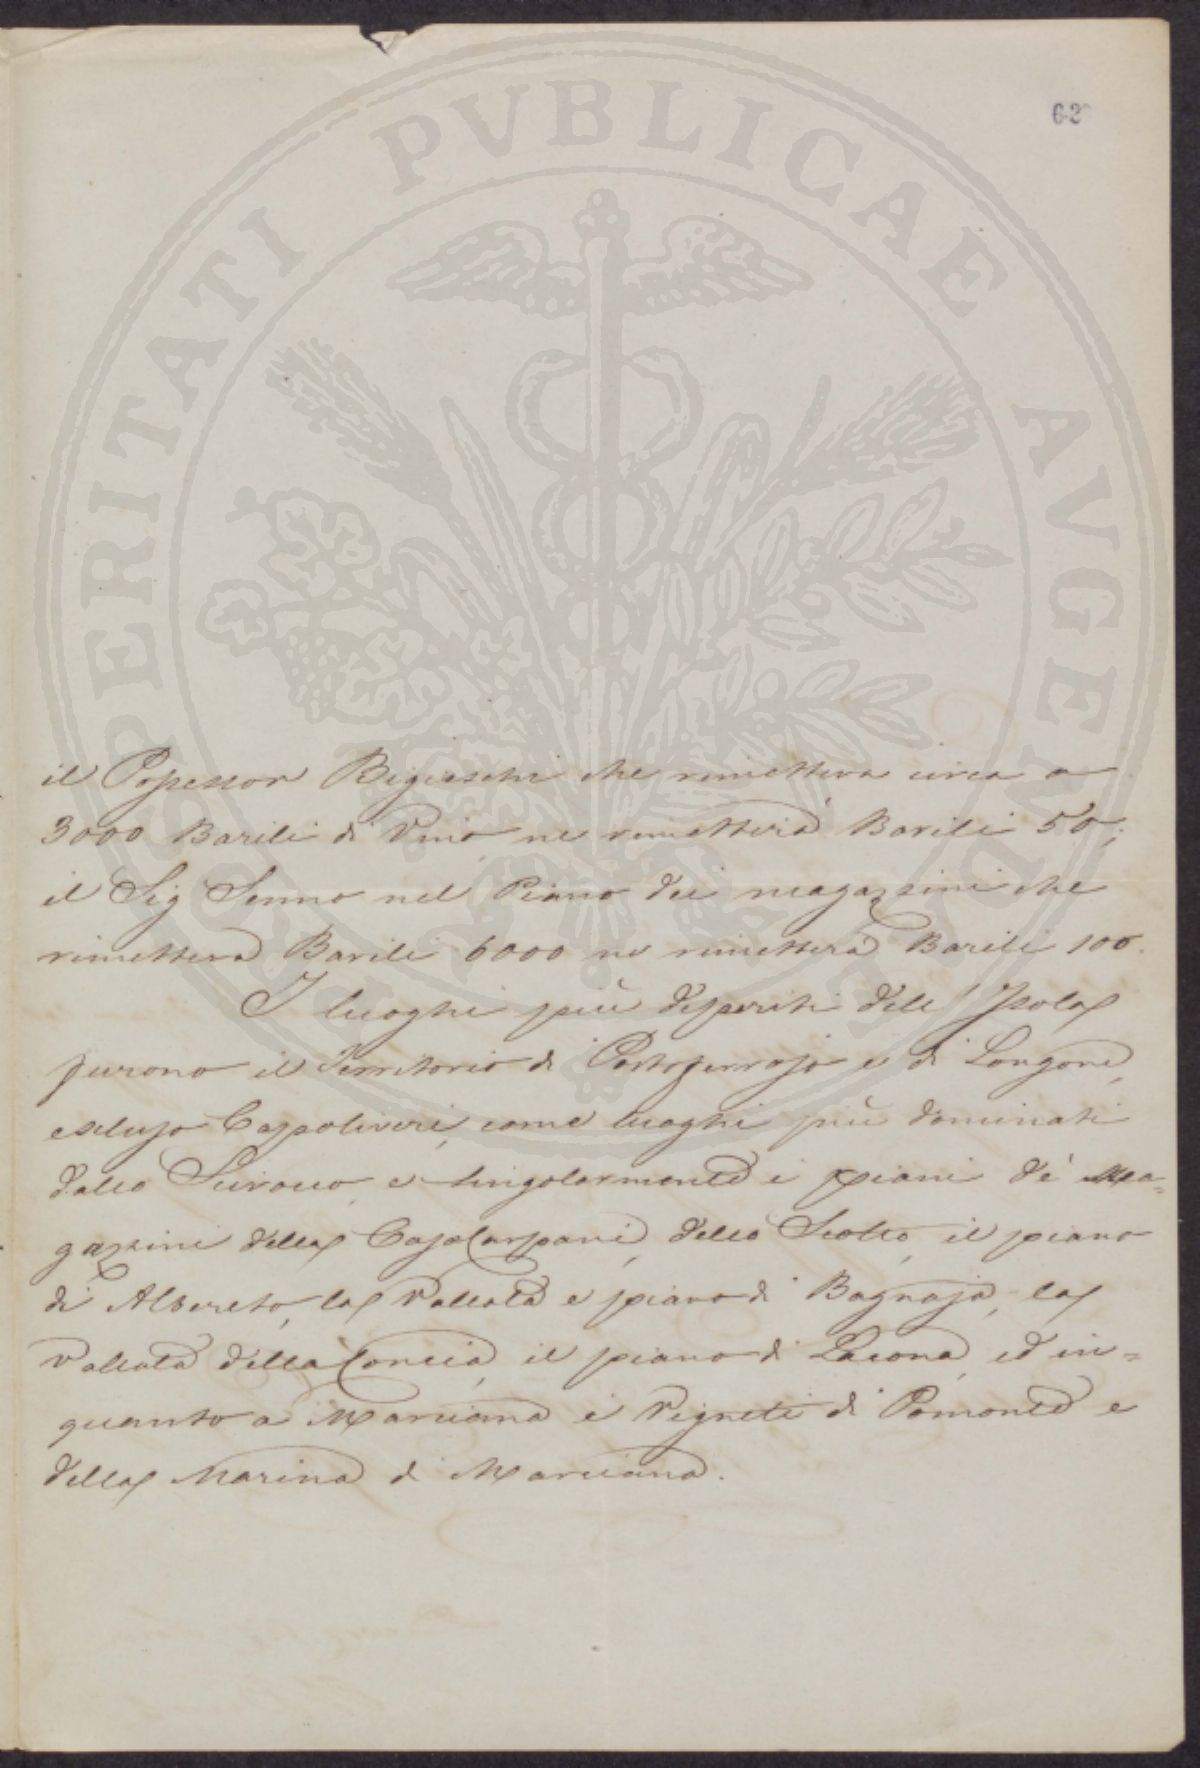 62
PROSPERITATI PVBLICAE AVGENDAE
il Possessor Bigeschi che rimetteva circa a
3000 Barili di Vino, ne rimetterà Barili 50;
il Sig Senno nel Piano dei magazzini che
rimetteva Barili 6000 ne rimetterà Barili 100.
I luoghi più desperiti dell' Isola
furono il Territorio di Portoferrajo e di Longone,
escluso Capoliveri, come luoghi più dominati
dallo Scirocco, e singolarmente i piani de' Ma=
gazzini della Casa Carpani, dello Scotto, il piano
di Albereto, la Vallata e piano di Bagnaja, la
Vallata della Concia, il piano di Lacona, ed in=
quanto a Marciana i Vigneti di Pomonte e
della Marina di Marciana.